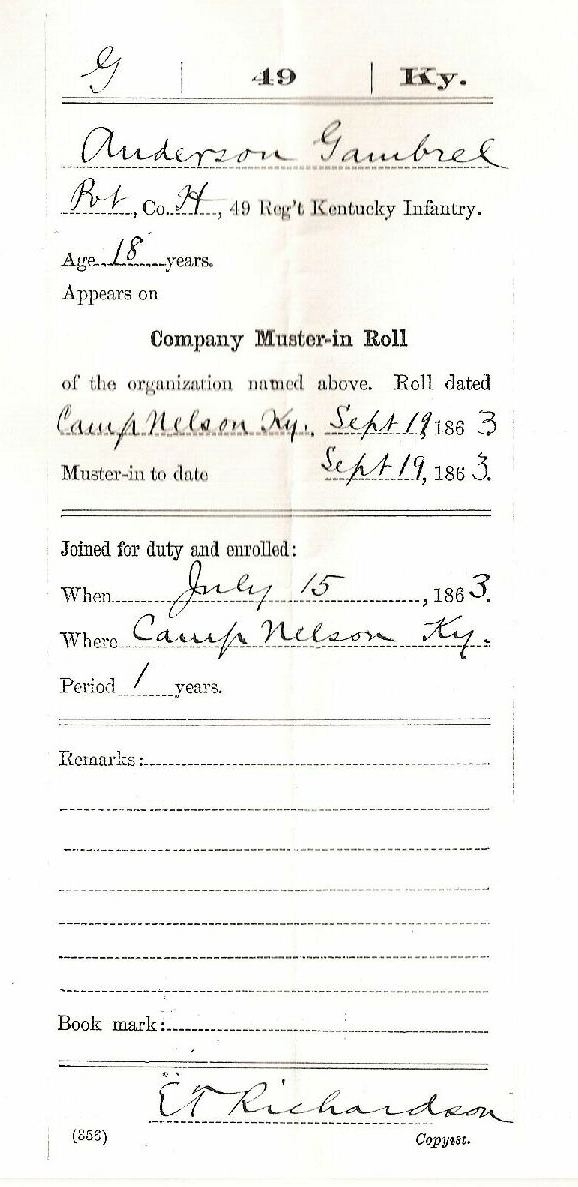 G | 49 | Ky.
Anderson Gambrel
Pvt, Co. H, 49 Reg't Kentucky Infantry.
Age 18 years.
Appears on
Company Muster-in Roll
of the organization named above. Roll dated
Camp Nelson Ky. Sept 19, 1863
Muster-in to date Sept 19, 1863.
Joined for duty and enrolled:
When July 15, 1863.
Where Camp Nelson Ky.
Period 1 years.
Remarks:
Book mark:
E T Richardson
(356) Copyist.